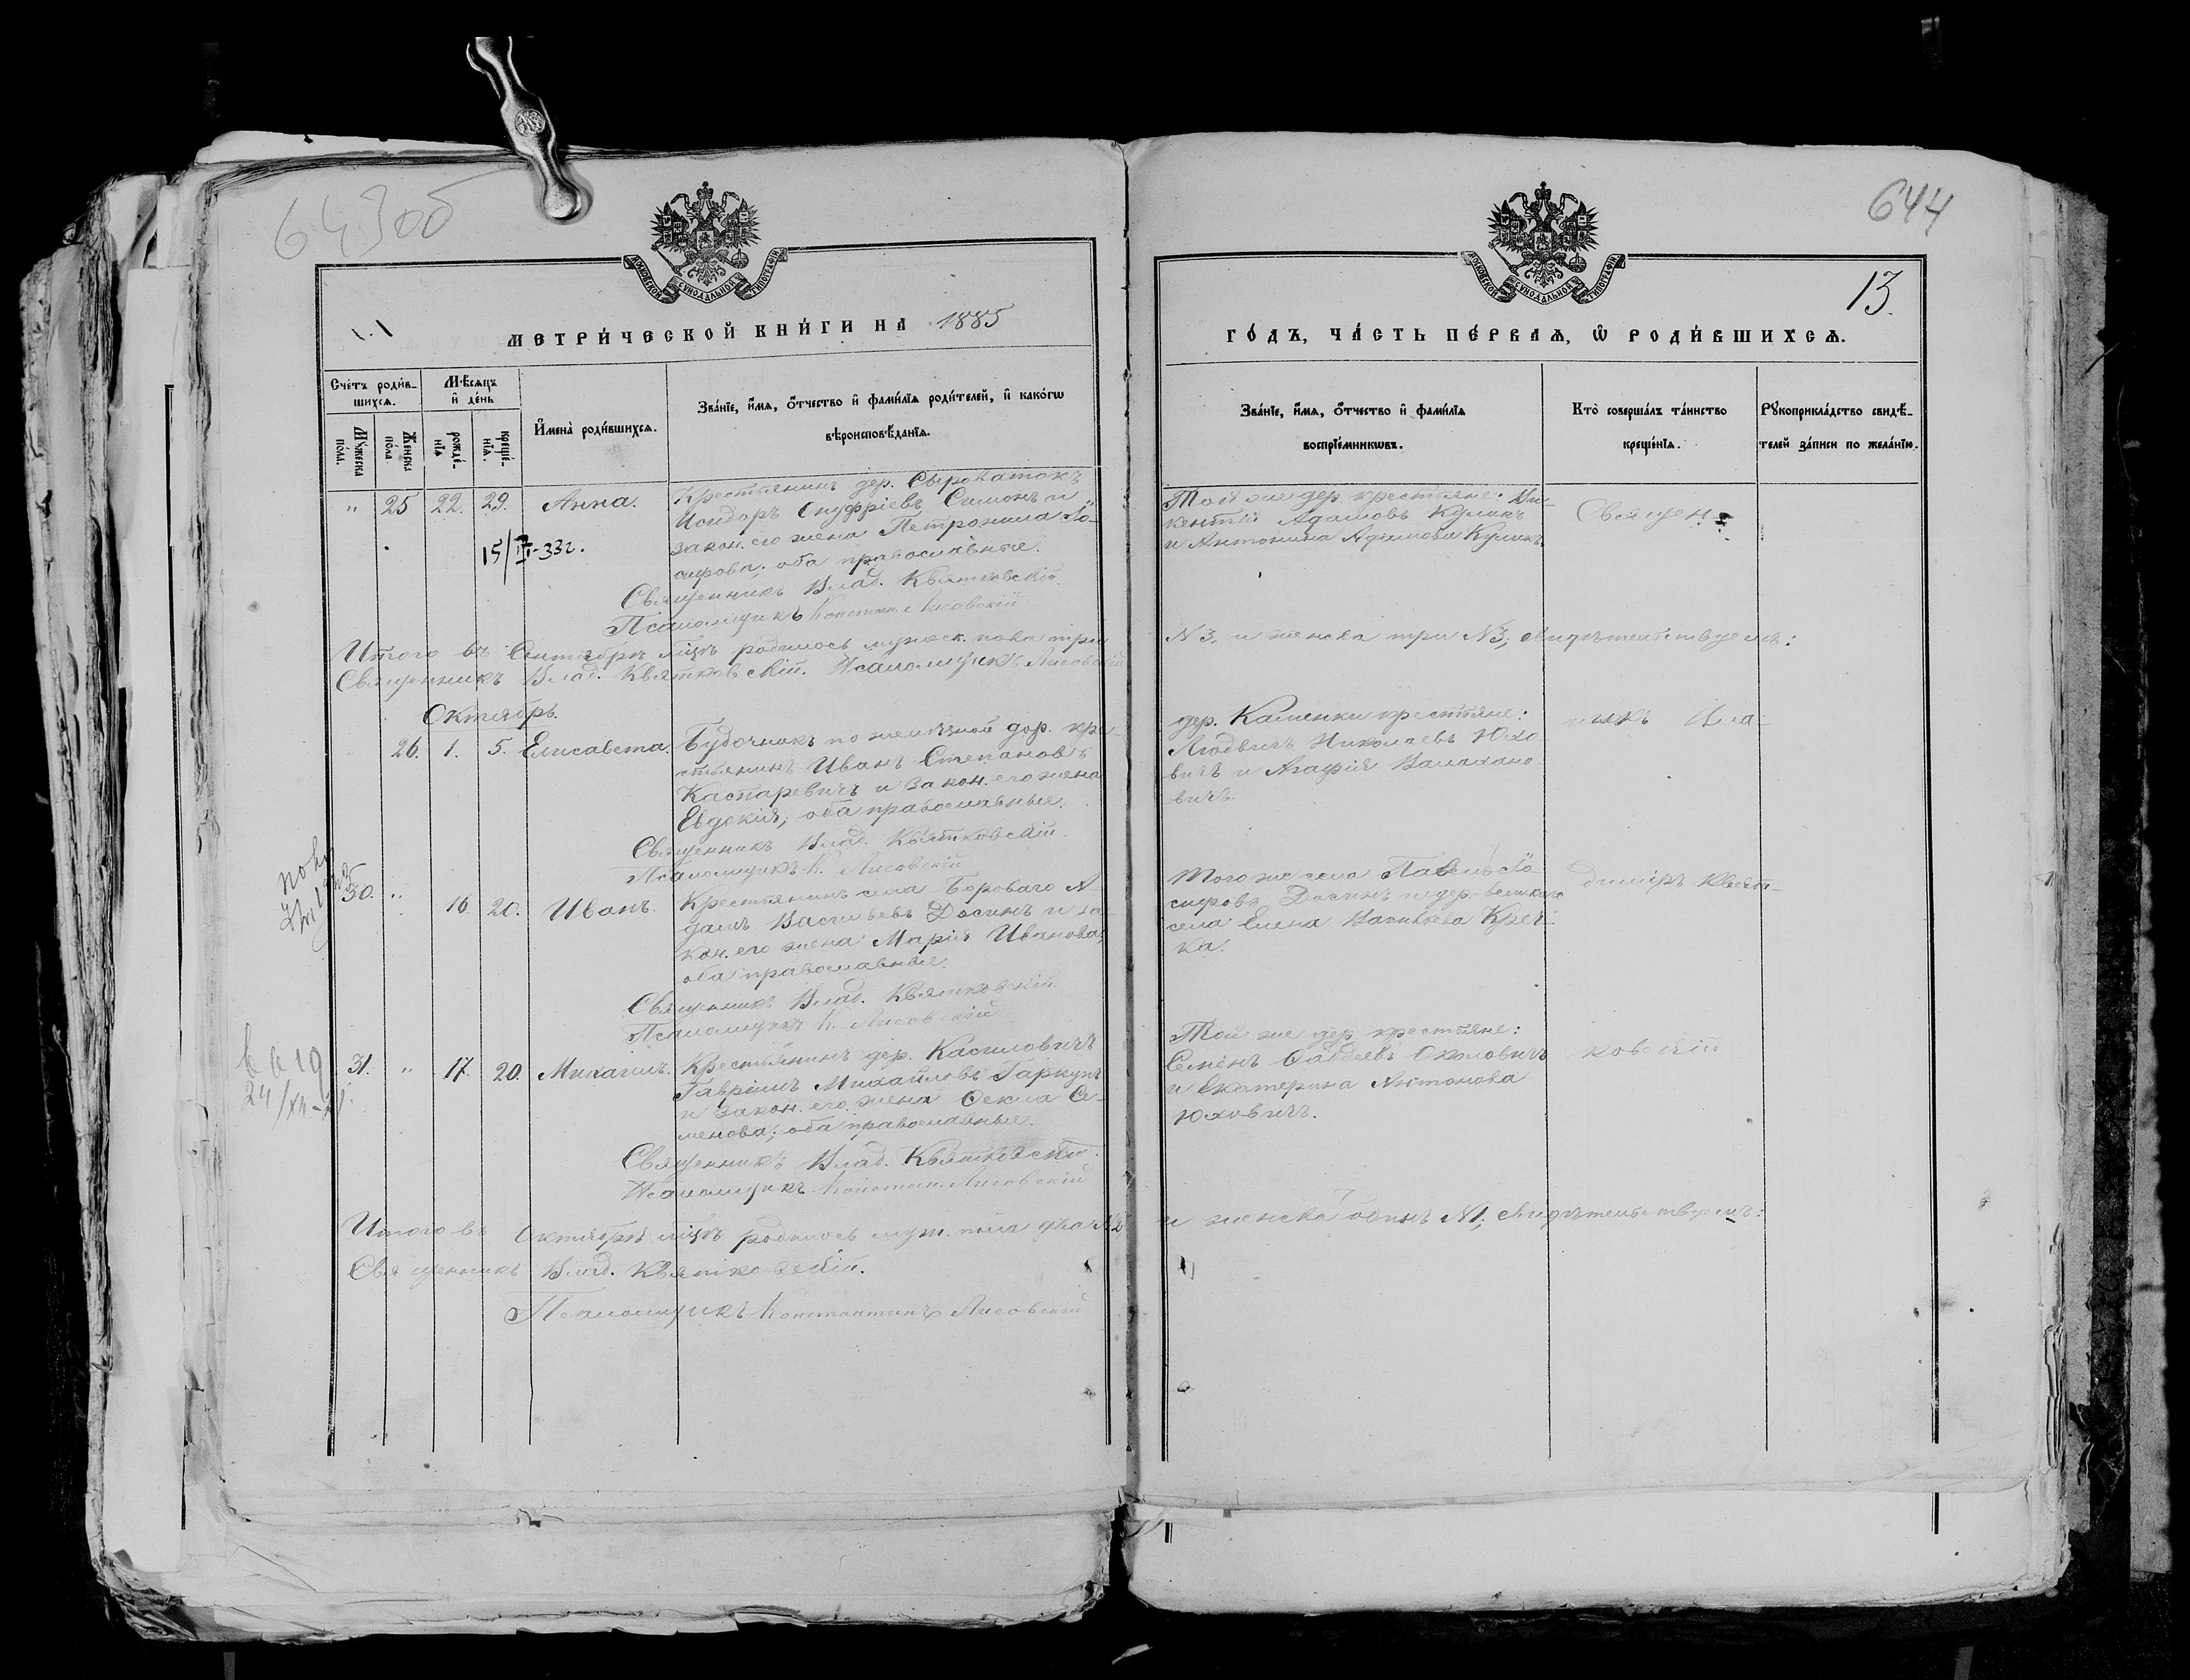 643об
644
13.
МОСКОВСКОЙ СУНОДАЛЬНОЙ ТИПОГРАФІИ
МОСКОВСКОЙ СУНОДАЛЬНОЙ ТИПОГРАФІИ
МЕТРИ́ЧЕСКОЙ КНИ́ГИ НА 1885
ГО́ДЪ, ЧА́СТЬ ПЕ́РВАѦ, Ѡ҆ РОДИ́ВШИХСѦ.
Сче́тъ роди́в-
шихсѧ.
Мѣсѧцъ
и҆ де́нь
Мꙋ́жеска
по́ла.
Же́нска
по́ла
рожде́-
нїѧ
креще́-
нїѧ.
И҆мена̀ роди́вшихсѧ.
Зва́нїе, и҆́мѧ, ѻ҆́тчество и҆ фами́лїѧ роди́телей, и҆ како́гѡ
вѣроисповѣ́данїѧ.
Зва́нїе, и҆́мѧ, ѻ҆́тчество и҆ фами́лїѧ
воспрїе́мникѡвъ.
Кто̀ соверша́лъ та́инство
креще́нїѧ.
Рꙋкоприкла́дство свидѣ́-
телей за́писи по жела́нїю.
" 25 22. 29. Анна.
Крестьянинъ дер. Сыроватокъ
Исидоръ Онуфріевъ Симонъ и
закон. его жена Петронила Іо-
сифова; оба православные.
15/III-33г.
Священникъ Влад. Квятковскій.
Псаломщикъ Констан. Лисовскій
Той же дер. крестьяне: Ви-
кентій Адамовъ Куликъ
и Антонина Адамова Куликъ
Священ-
Итого въ Сентябрѣ мцѣ родилось мужеск. пола три
№3, и женска три №3; свидѣтельствуемъ:
Священникъ Влад. Квятковскій. Псаломщикъ Лисовскій
Октябрь.
26. 1. 5. Елисавета.
Будочникъ по желѣзной дор. кре-
стьянинъ Иванъ Степановъ
Каспаревичъ и закон. его жена
Евдокія; оба православные.
Священникъ Влад. Квятковскій.
Псаломщикъ К. Лисовскій
дер. Каменки крестьяне:
Людвигъ Николаевъ Юхо
вичъ и Агафія
вичъ.
никъ Вла-
30. " 16. 20. Иванъ.
Крестьянинъ села Бороваго А-
дамъ Васильевъ Досинъ и за-
кон. его жена Марія Иванова;
оба православные.
Священникъ Влад. Квятковскій
Псаломщикъ К. Лисовскій
Того же села Павелъ Іо-
сифовъ Досинъ и дер. Великаго
села Елена Васильева Креч-
ка.
диміръ Квят-
24/XII
31. " 17. 20. Михаилъ.
Крестьянинъ дер. Касиловичъ
Гавріилъ Михайловъ Гаркунъ
и закон. его жена Ѳекла Се-
менова; оба православные.
Священникъ Влад. Квятковскій.
Псаломщикъ Констан. Лисовскій
Той же дер. крестьяне:
Семенъ
и Екатерина Антонова
Юховичъ.
ковскій
Итого въ Октябрѣ мцѣ родилось муж. пола два №2
и женска одинъ №1; свидѣтельствуемъ:
Священникъ Влад. Квятковскій.
Псаломщикъ Константинъ Лисовскій